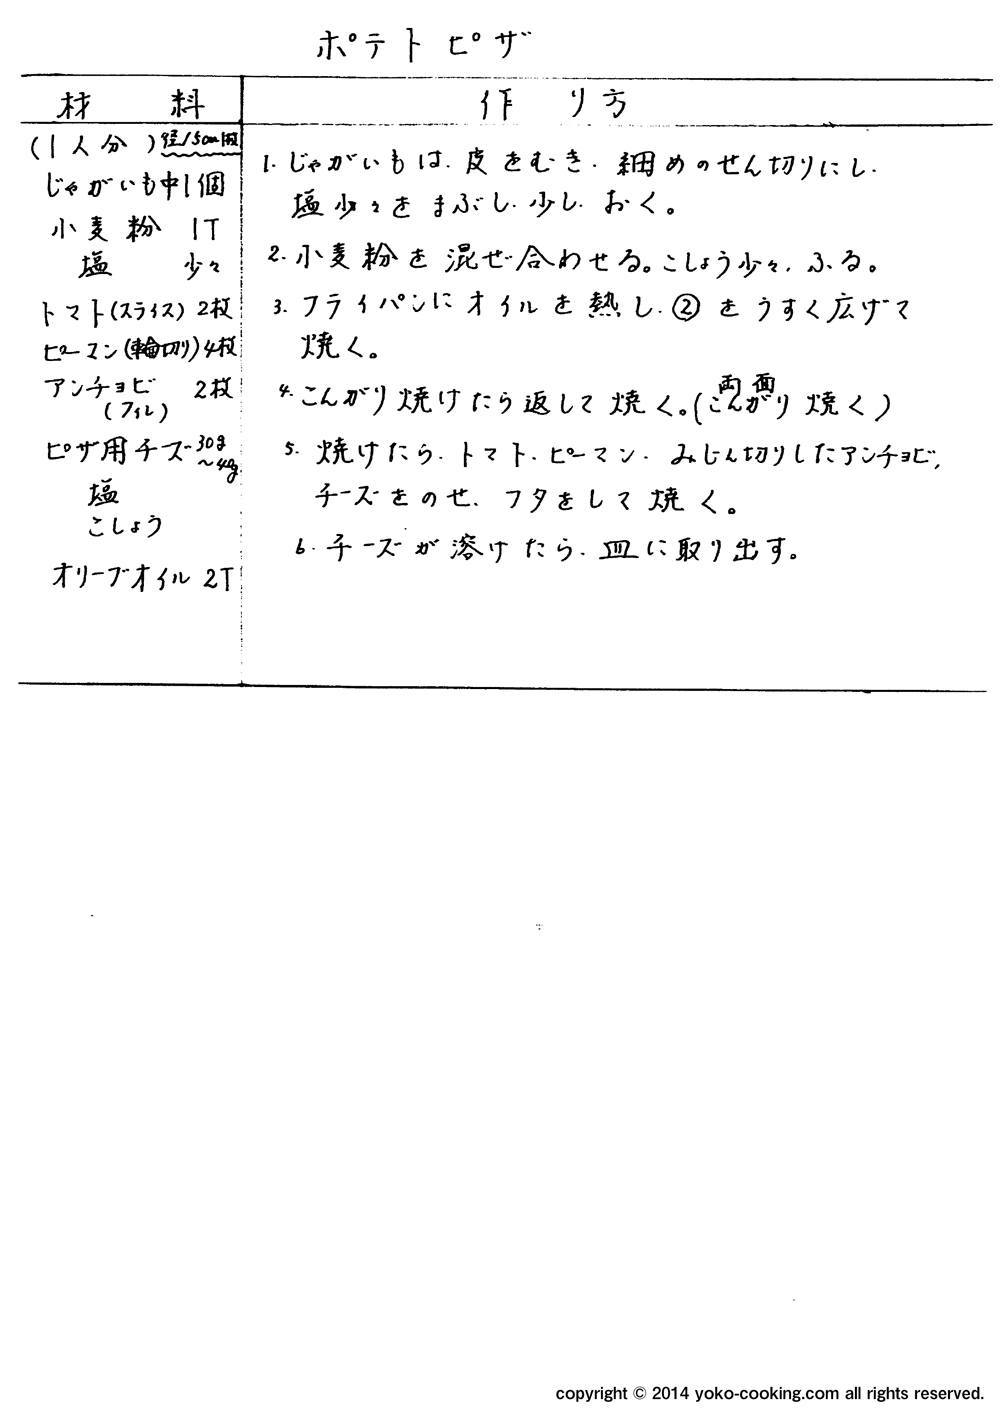 ポテト ピザ
材 料
作 り 方
(1人分)径15cm
じゃがいも中1個
小麦粉 1T
塩 少々
トマト(スライス) 2枚
ピーマン(輪切り)4枚
アンチョビ 2枚
(フィレ)
ピザ用チーズ 30g
〜40g
塩
こしょう
オリーブオイル 2T
1. じゃがいもは、皮をむき、細めのせん切りにし、
塩少々をまぶし、少し、おく。
2. 小麦粉を混ぜ合わせる。こしょう少々、ふる。
3. フライパンにオイルを熱し、②をうすく広げて
焼く。
4. こんがり焼けたら返して焼く。(両面こんがり焼く)
5. 焼けたら、トマト、ピーマン、みじん切りしたアンチョビ、
チーズをのせ、フタをして焼く。
6. チーズが溶けたら、皿に取り出す。
copyright © 2014 yoko-cooking.com all rights reserved.